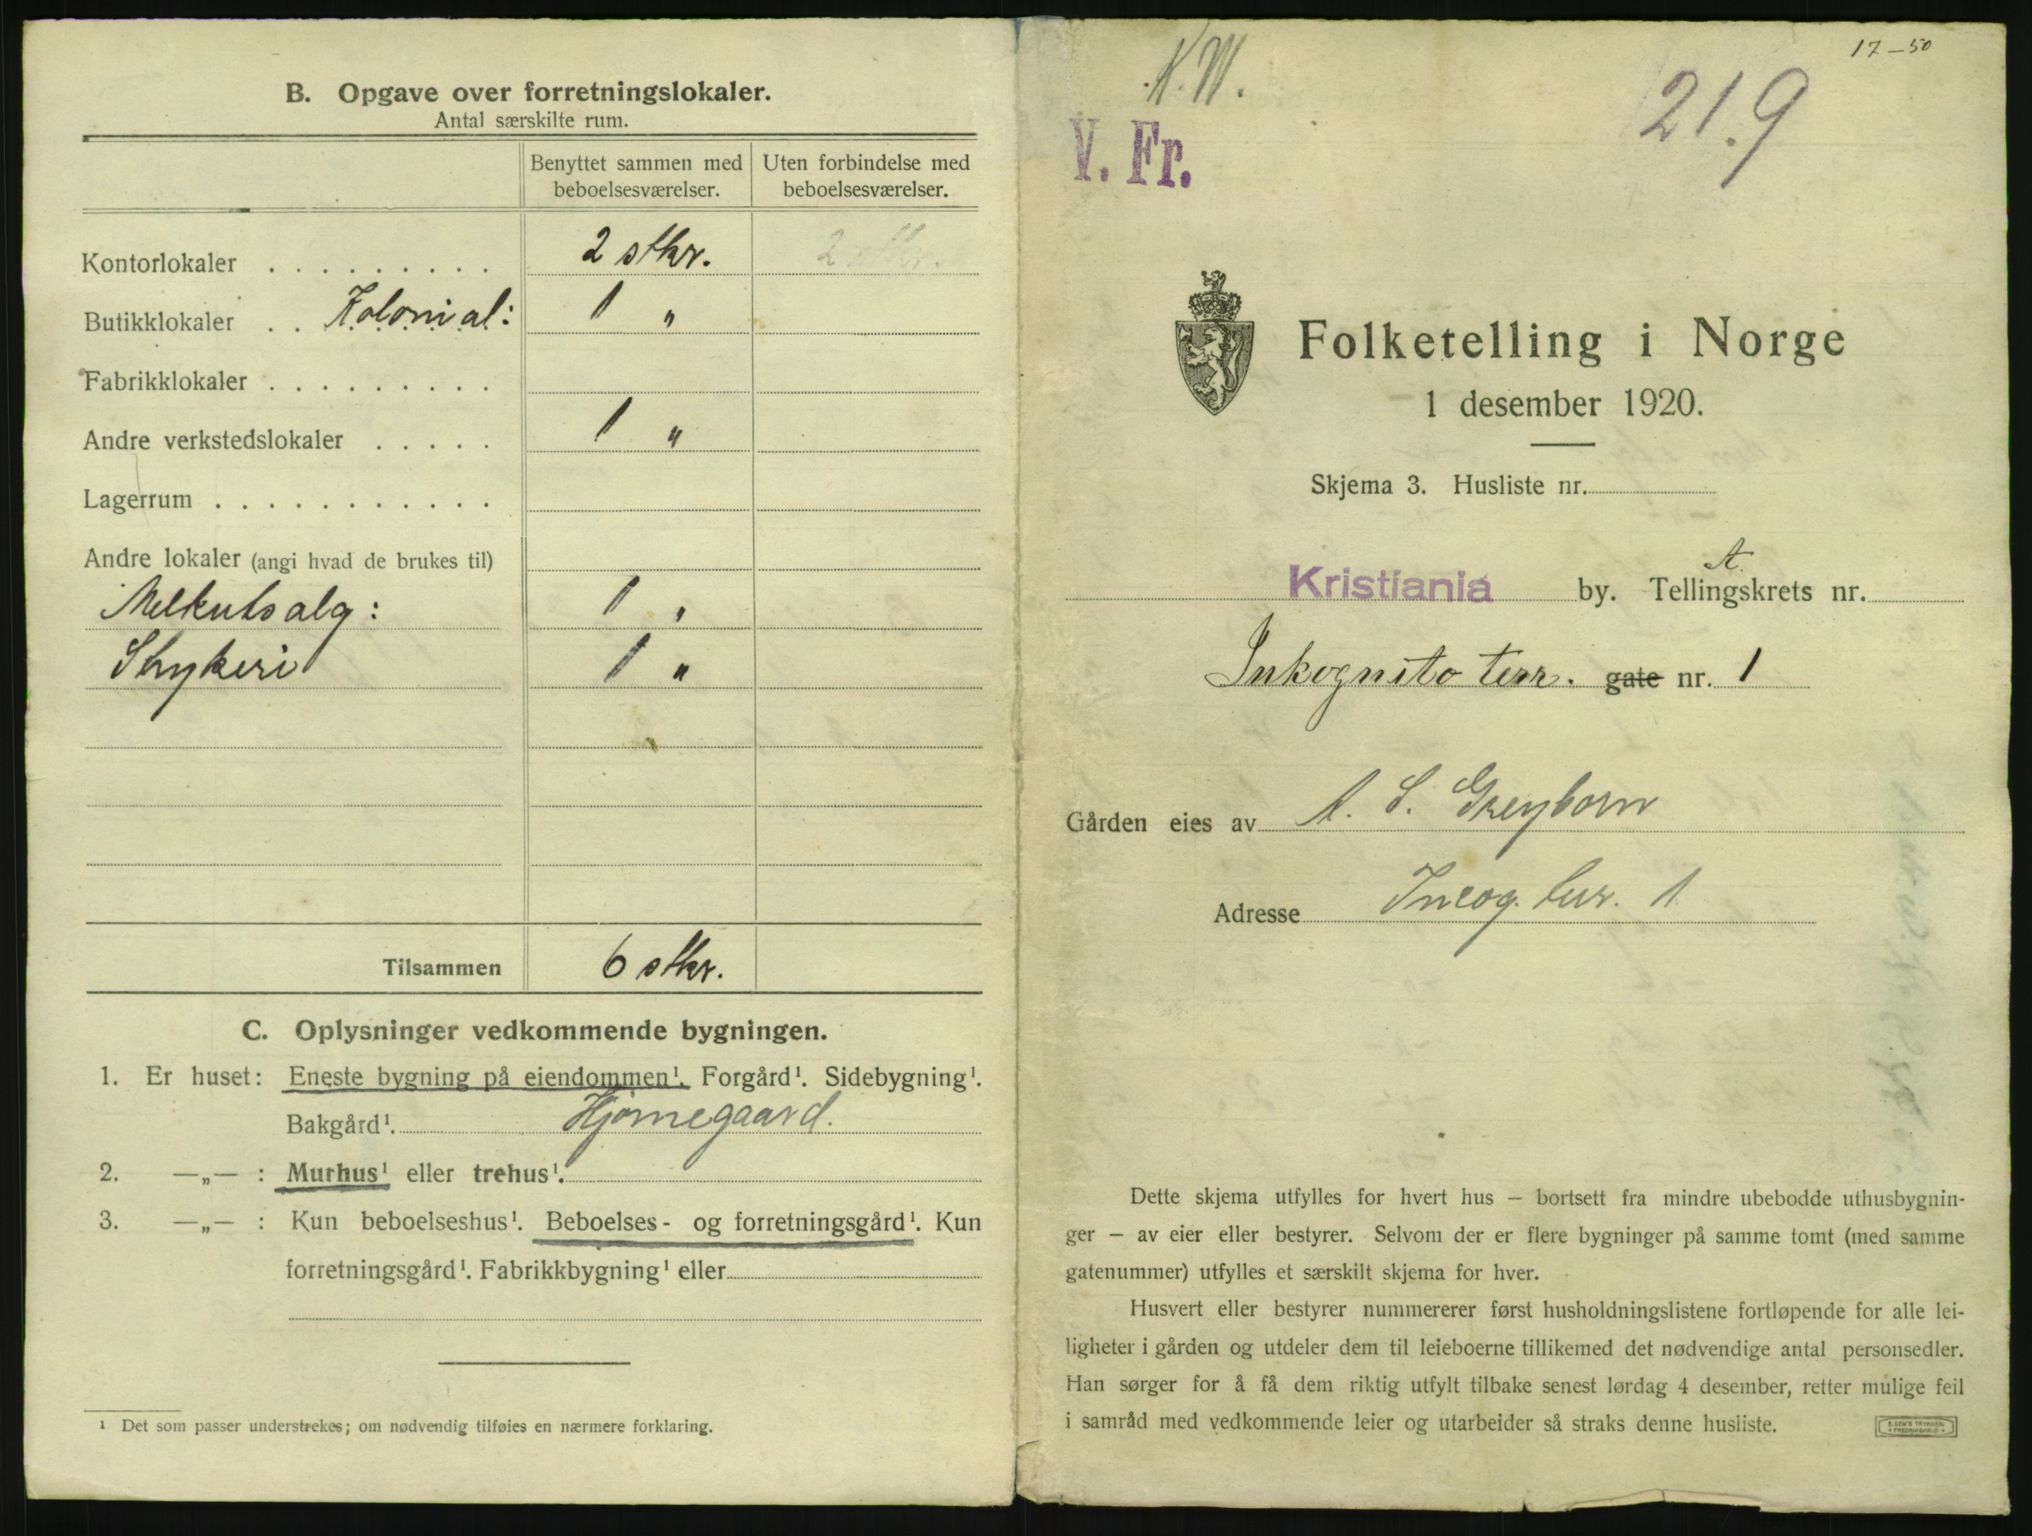 B. Opgave over forretningslokaler.
Antal særskilte rum.
Benyttet sammen med beboelsesværelser.
Uten forbindelse med beboelsesværelser.
Kontorlokaler . . . . . . . . . 2 stkr. 2 stkr.
Butikklokaler . . Kolonial: 1 "
Fabrikklokaler . . . . . . . . .
Andre verkstedslokaler . . . . . 1 "
Lagerrum . . . . . . . . . . .
Andre lokaler (angi hvad de brukes til)
Melkutsalg: 1 "
Strykeri 1 "
Tilsammen 6 stkr.
C. Oplysninger vedkommende bygningen.
1. Er huset: Eneste bygning på eiendommen¹. Forgård¹. Sidebygning¹.
Bakgård¹. Hjørnegaard.
2. —„— : Murhus¹ eller trehus¹.
3. —„— : Kun beboelseshus¹. Beboelses- og forretningsgård¹. Kun
forretningsgård¹. Fabrikkbygning¹ eller
¹ Det som passer understrekes; om nødvendig tilføies en nærmere forklaring.
17-50
K.W.
21.9
V. Fr.
Folketelling i Norge
1 desember 1920.
Skjema 3. Husliste nr.
A.
Kristiania by. Tellingskrets nr.
Inkognito terr. gate nr. 1
Gården eies av A. S. Greyborn
Adresse Incog. terr. 1.
Dette skjema utfylles for hvert hus — bortsett fra mindre ubebodde uthusbygnin-
ger — av eier eller bestyrer. Selvom der er flere bygninger på samme tomt (med samme
gatenummer) utfylles et særskilt skjema for hver.
Husvert eller bestyrer nummererer først husholdningslistene fortløpende for alle lei-
ligheter i gården og utdeler dem til leieboerne tillikemed det nødvendige antal personsedler.
Han sørger for å få dem riktig utfylt tilbake senest lørdag 4 desember, retter mulige feil
i samråd med vedkommende leier og utarbeider så straks denne husliste.